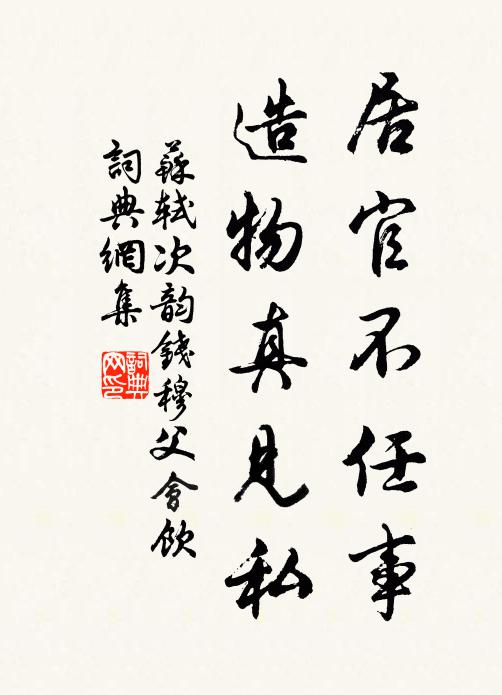 居官不任事
造物真見私
蘇軾次韵錢穆父會飲
詞典網集
詞典
网印